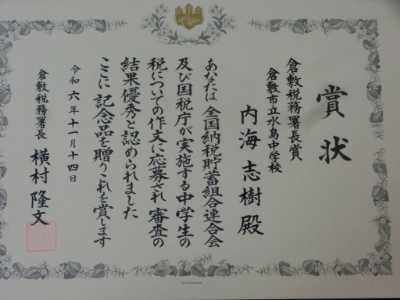 賞状
倉敷税務署長賞
倉敷市立水島中学校
内海志樹殿
あなたは全国納税貯蓄組合連合会
及び国税庁が実施する中学生の
税についての作文に応募され審査の
結果優秀と認められました
ここに記念品を贈りこれを賞します
令和六年十一月十四日
倉敷税務署長 横村隆文